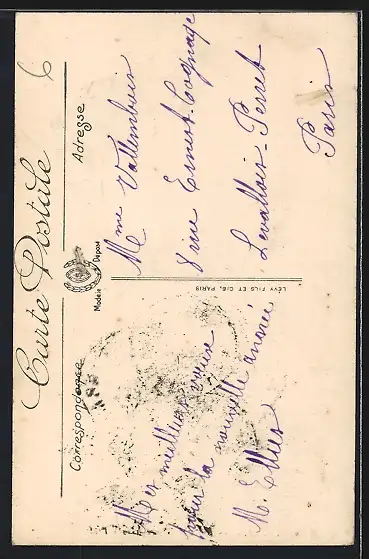 6
Carte Postale
Correspondance
Adresse
Modèle Déposé
LÉVY FILS ET CIE, PARIS
Mes meilleurs vœux
pour la nouvelle année
M.
Mme
8 rue Ernest Cognacq
Levallois-Perret
Paris